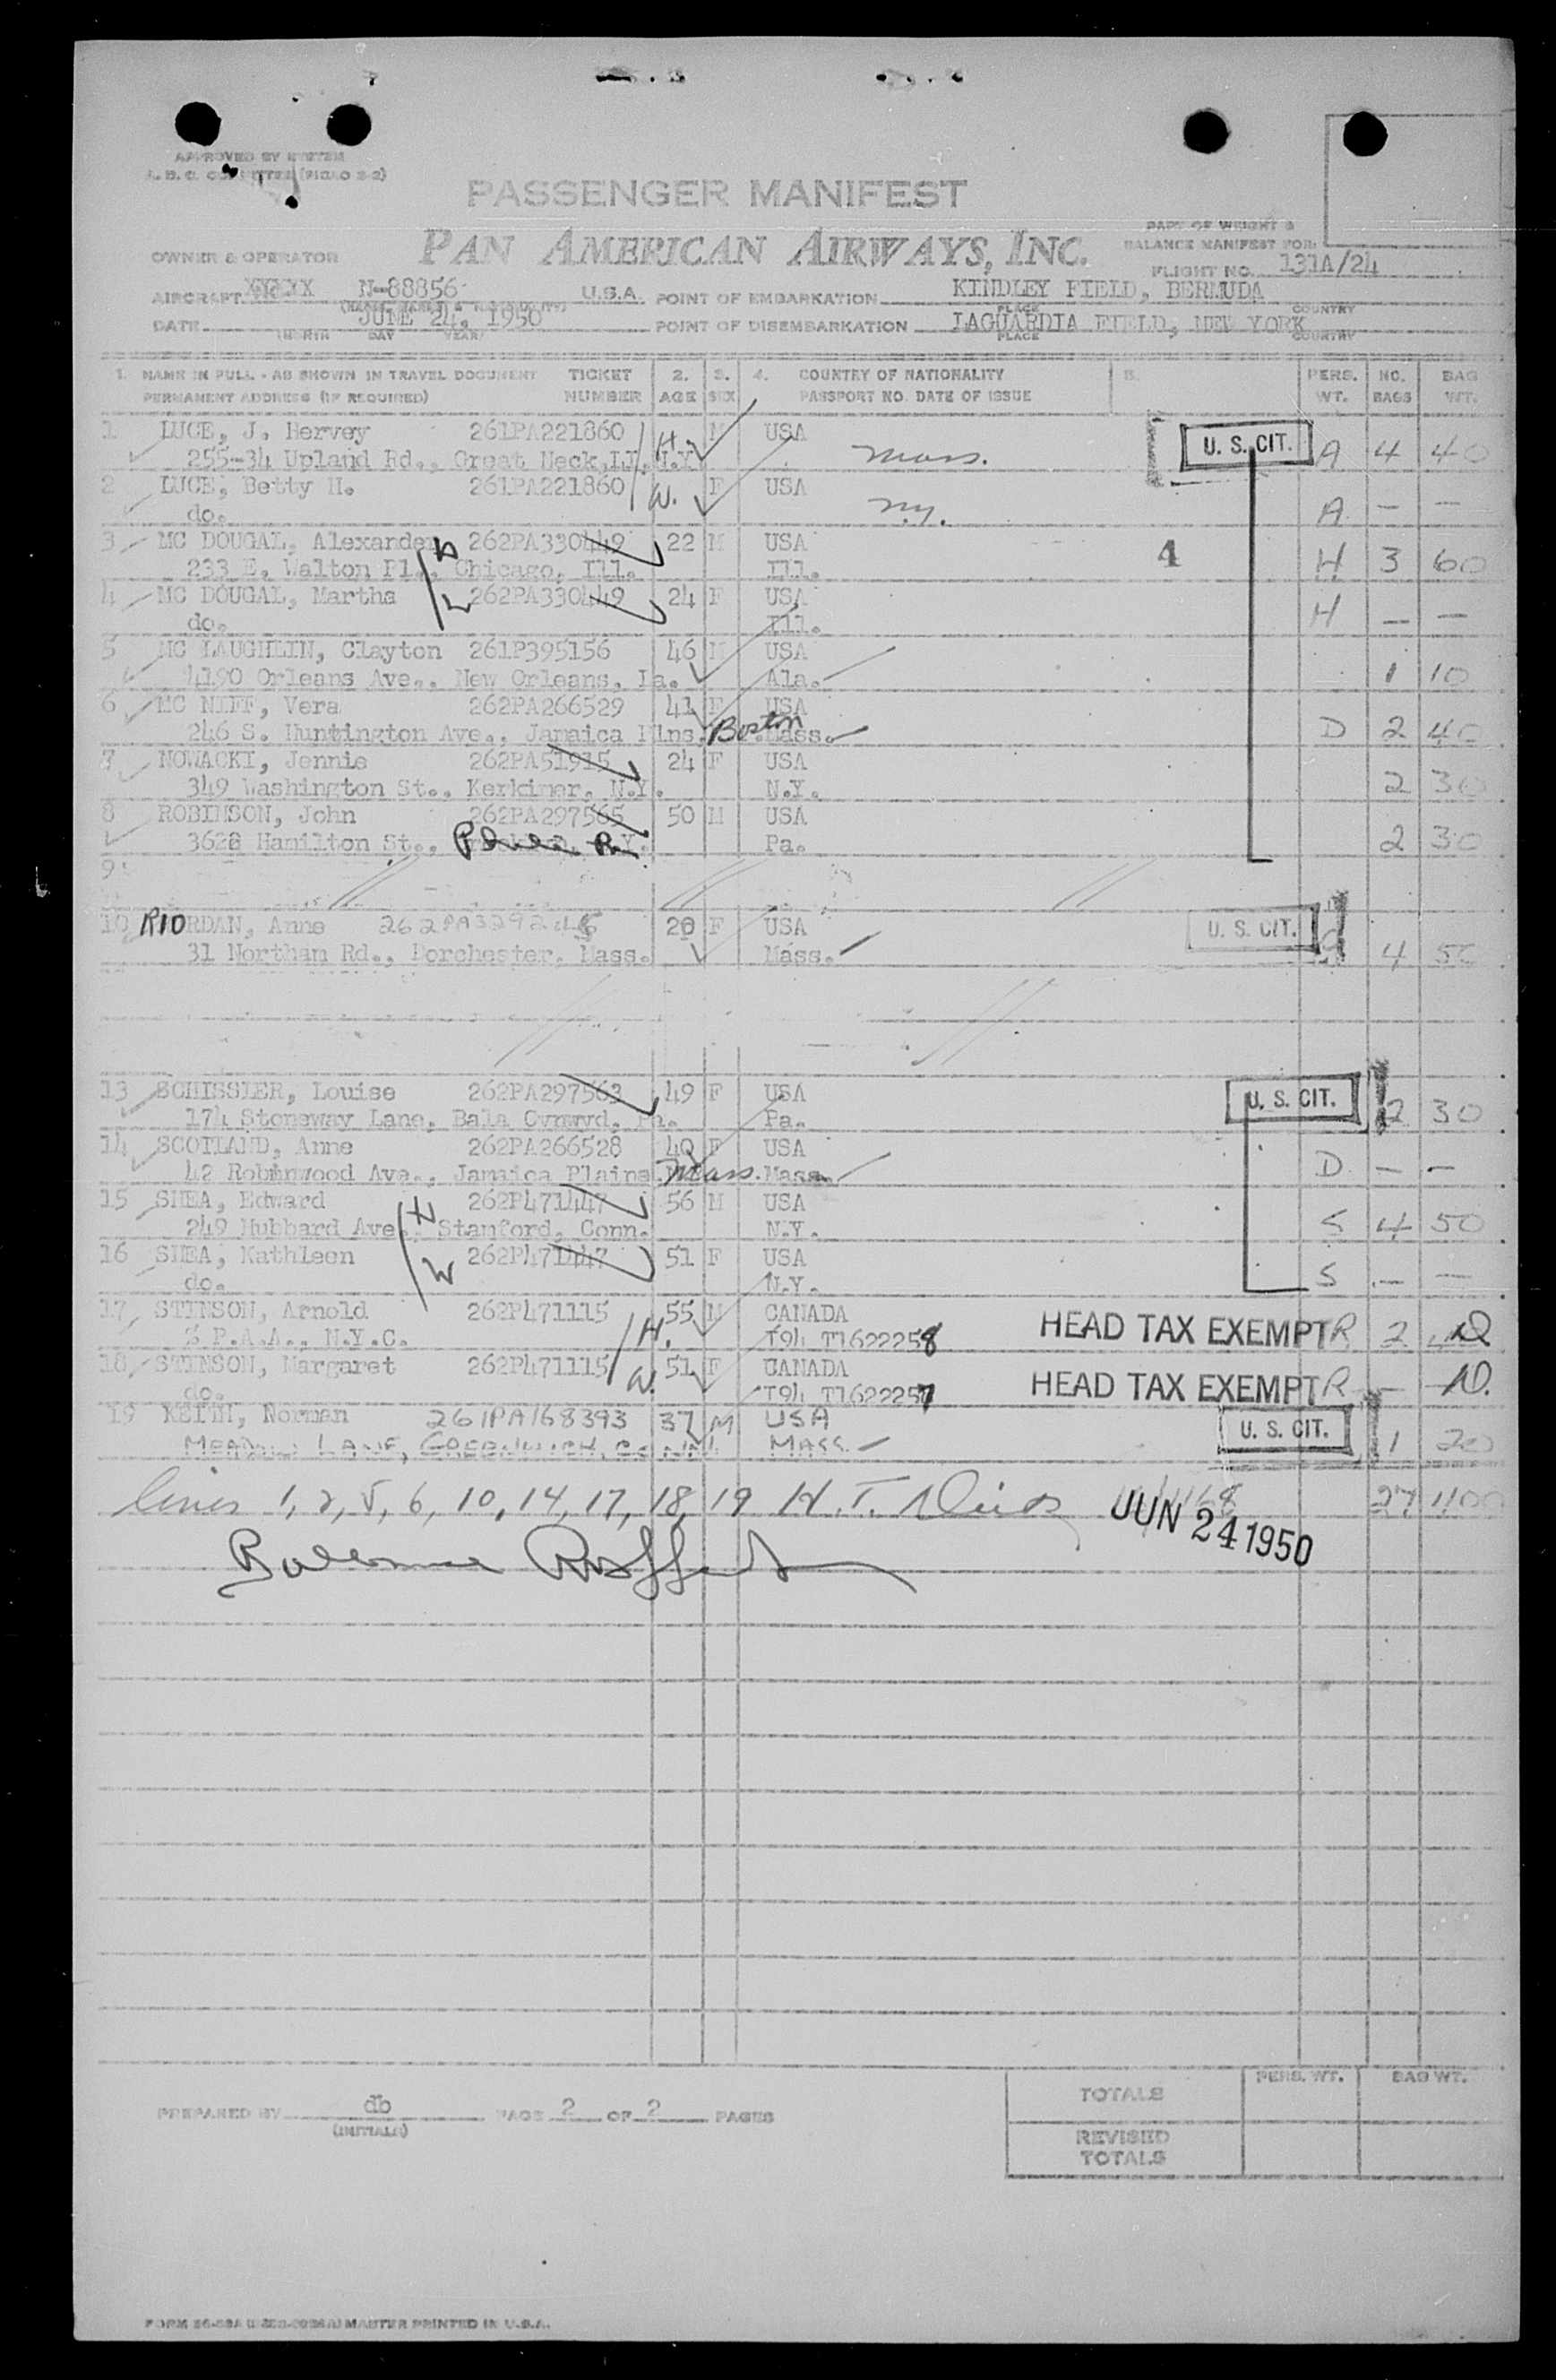 APPROVED BY SYSTEM
PASSENGER MANIFEST
PART OF WEIGHT &
BALANCE MANIFEST FOR
OWNER & OPERATOR PAN AMERICAN AIRWAYS, INC.
FLIGHT NO. 131A/24
AIRCRAFT XXXXX N-88856 U.S.A. POINT OF EMBARKATION KINDLEY FIELD, BERMUDA
PLACE COUNTRY
DATE JUNE 24, 1950 POINT OF DISEMBARKATION LAGUARDIA FIELD, NEW YORK
MONTH DAY YEAR PLACE COUNTRY
1. NAME IN FULL - AS SHOWN IN TRAVEL DOCUMENT TICKET 2. 3. 4. COUNTRY OF NATIONALITY 5. PERS. NO. BAG
PERMANENT ADDRESS (IF REQUIRED) NUMBER AGE SEX PASSPORT NO. DATE OF ISSUE WT. BAGS WT.
1 LUCE, J. Hervey 261PA221860 H. M USA U. S. CIT. A 4 40
255-34 Upland Rd., Great Neck, LI, N.Y. Mass.
2 LUCE, Betty H. 261PA221860 W. F USA
do. N.Y. A — —
3 MC DOUGAL, Alexander H 262PA330449 22 M USA 4 H 3 60
233 E. Walton Pl., Chicago, Ill. Ill.
4 MC DOUGAL, Martha W 262PA330449 24 F USA H — —
do. Ill.
5 MC LAUGHLIN, Clayton 261P395156 46 M USA
4190 Orleans Ave., New Orleans, La. Ala. 1 10
6 MC NIFF, Vera 262PA266529 41 F USA
246 S. Huntington Ave., Jamaica Plns, Boston Mass. D 2 40
7 NOWACKI, Jennie 262PA51915 24 F USA
349 Washington St., Kerkimer, N.Y. N.Y. 2 30
8 ROBINSON, John 262PA297565 50 M USA
3628 Hamilton St., Phila. Pa. Pa. 2 30
9
10 RIORDAN, Anne 262PA329246 28 F USA U. S. CIT.
31 Northam Rd., Dorchester, Mass. Mass. 4 50
13 SCHISSLER, Louise 262PA297563 49 F USA U. S. CIT. 2 30
174 Stoneway Lane, Bala Cynwyd, Pa. Pa.
14 SCOTLAND, Anne 262PA266528 40 F USA
42 Robinwood Ave., Jamaica Plains Mass. Mass. D — —
15 SHEA, Edward H 262P471447 56 M USA
249 Hubbard Ave., Stamford, Conn. N.Y. S 4 50
16 SHEA, Kathleen W 262P471447 51 F USA
do. N.Y. S — —
17 STINSON, Arnold 262P471115 55 M CANADA
% P.A.A., N.Y.C. H. T94 T1622258 HEAD TAX EXEMPT R 2
18 STINSON, Margaret 262P471115 51 F CANADA
do. W. T94 T1622257 HEAD TAX EXEMPT R —
19 KEITH, Norman 261PA168393 37 M USA U. S. CIT.
MEADOW LANE, GREENWICH, CONN. MASS. 1 20
lines 1, 2, 5, 6, 10, 14, 17, 18, 19 H. T. 27 1100
JUN 24 1950
TOTALS PERS. WT. BAG WT.
PREPARED BY db PAGE 2 OF 2 PAGES
(INITIALS)
REVISED
TOTALS
MASTER PRINTED IN U.S.A.